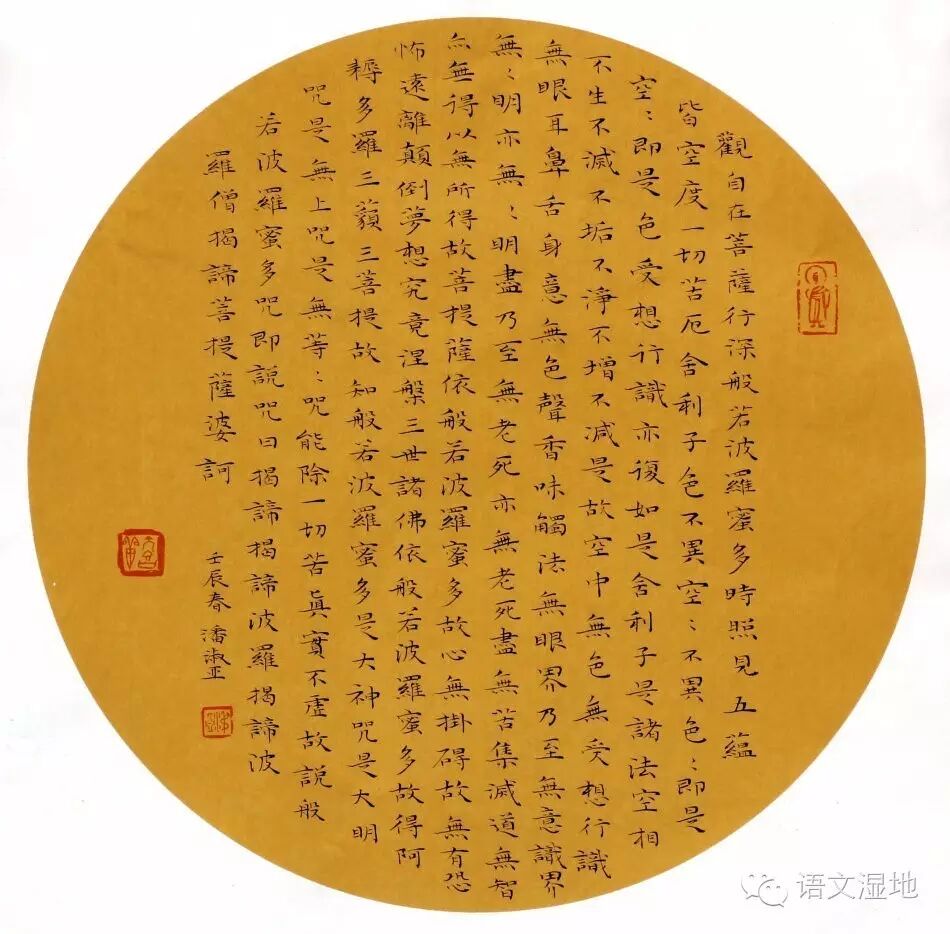 觀自在菩薩行深般若波羅蜜多時照見五蘊
皆空度一切苦厄舍利子色不異空：不異色：即是
空：即是色受想行識亦復如是舍利子是諸法空相
不生不滅不垢不淨不增不減是故空中無色無受想行識
無眼耳鼻舌身意無色聲香味觸法無眼界乃至無意識界
無：明亦無：明盡乃至無老死亦無老死盡無苦集滅道無智
亦無得以無所得故菩提薩依般若波羅蜜多故心無掛碍故無有恐
怖遠離顛倒夢想究竟涅槃三世諸佛依般若波羅蜜多故得阿
耨多羅三藐三菩提故知般若波羅蜜多是大神咒是大明
咒是無上咒是無等：咒能除一切苦眞實不虛故説般
若波羅蜜多咒即説咒曰揭諦揭諦波羅揭諦波
羅僧揭諦菩提薩婆訶
壬辰春潘淑亚
语文湿地